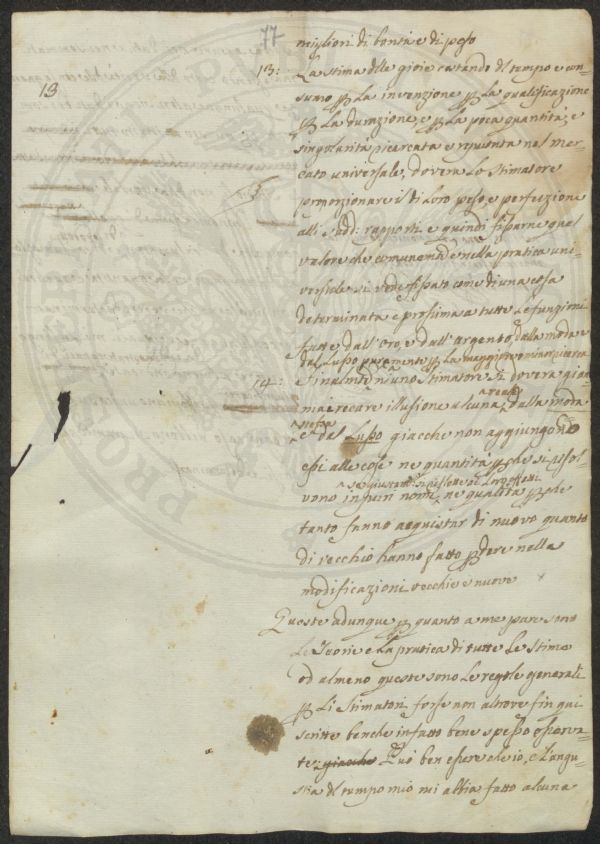 77
13
migliori di bontà e di peso
13: La stima delle gioie restando dl tempo e con=
sumo p La invenzione p La qualificazione
p La durazione, e p La poca quantità, e
singolarità ricercata e riputata nel mer=
cato universale, dovera Lo Stimatore
proporzionare i di Loro peso, e perfezione
alli sudd: rapporti e quindi fissarne quel
valore che comunemte e nella pratica uni=
versale si vede fissato come di una cosa
determinata e prossima a tutte Le funzioni
fatte dall'Oro, e dall'Argento, dalla moda e
dal Lusso puramente p La maggior o minor
14: Finalmte niuno Stimatore si dovera gia
mai recare illusione alcuna dalla moda
stessa
e dal Lusso giacche non aggiungono
essi alle cose ne quantità pche si risol=
vono in puri nomi, ne qualità pche
tanto fanno acquistar di nuovo quanto
di vecchio hanno fatto pdere nella
modificazioni vecchie e nuove
Queste adunque p quanto a me pare sono
Le Teorie e La pratica di tutte Le Stime
od almeno queste sono Le regole generali
p Li Stimatori forse non altrove fin qui
scritte benche infatto bene spesso osserva=
te giacche Può ben essere che io, e L'angu=
stia dl tempo mio mi abbia fatto alcuna